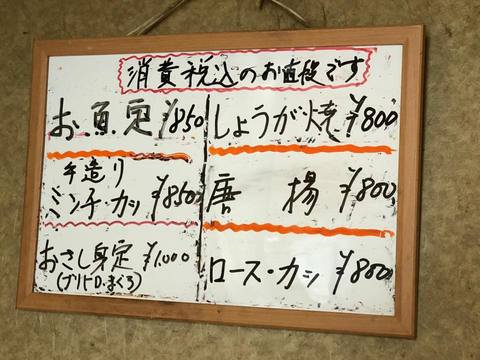 消費税込のお値段です
お魚定 ¥850
手造り
ミンチ・カツ ¥850
おさし身定 ¥1,000
しょうが焼 ¥800
唐揚 ¥800
ロース・カツ ¥800